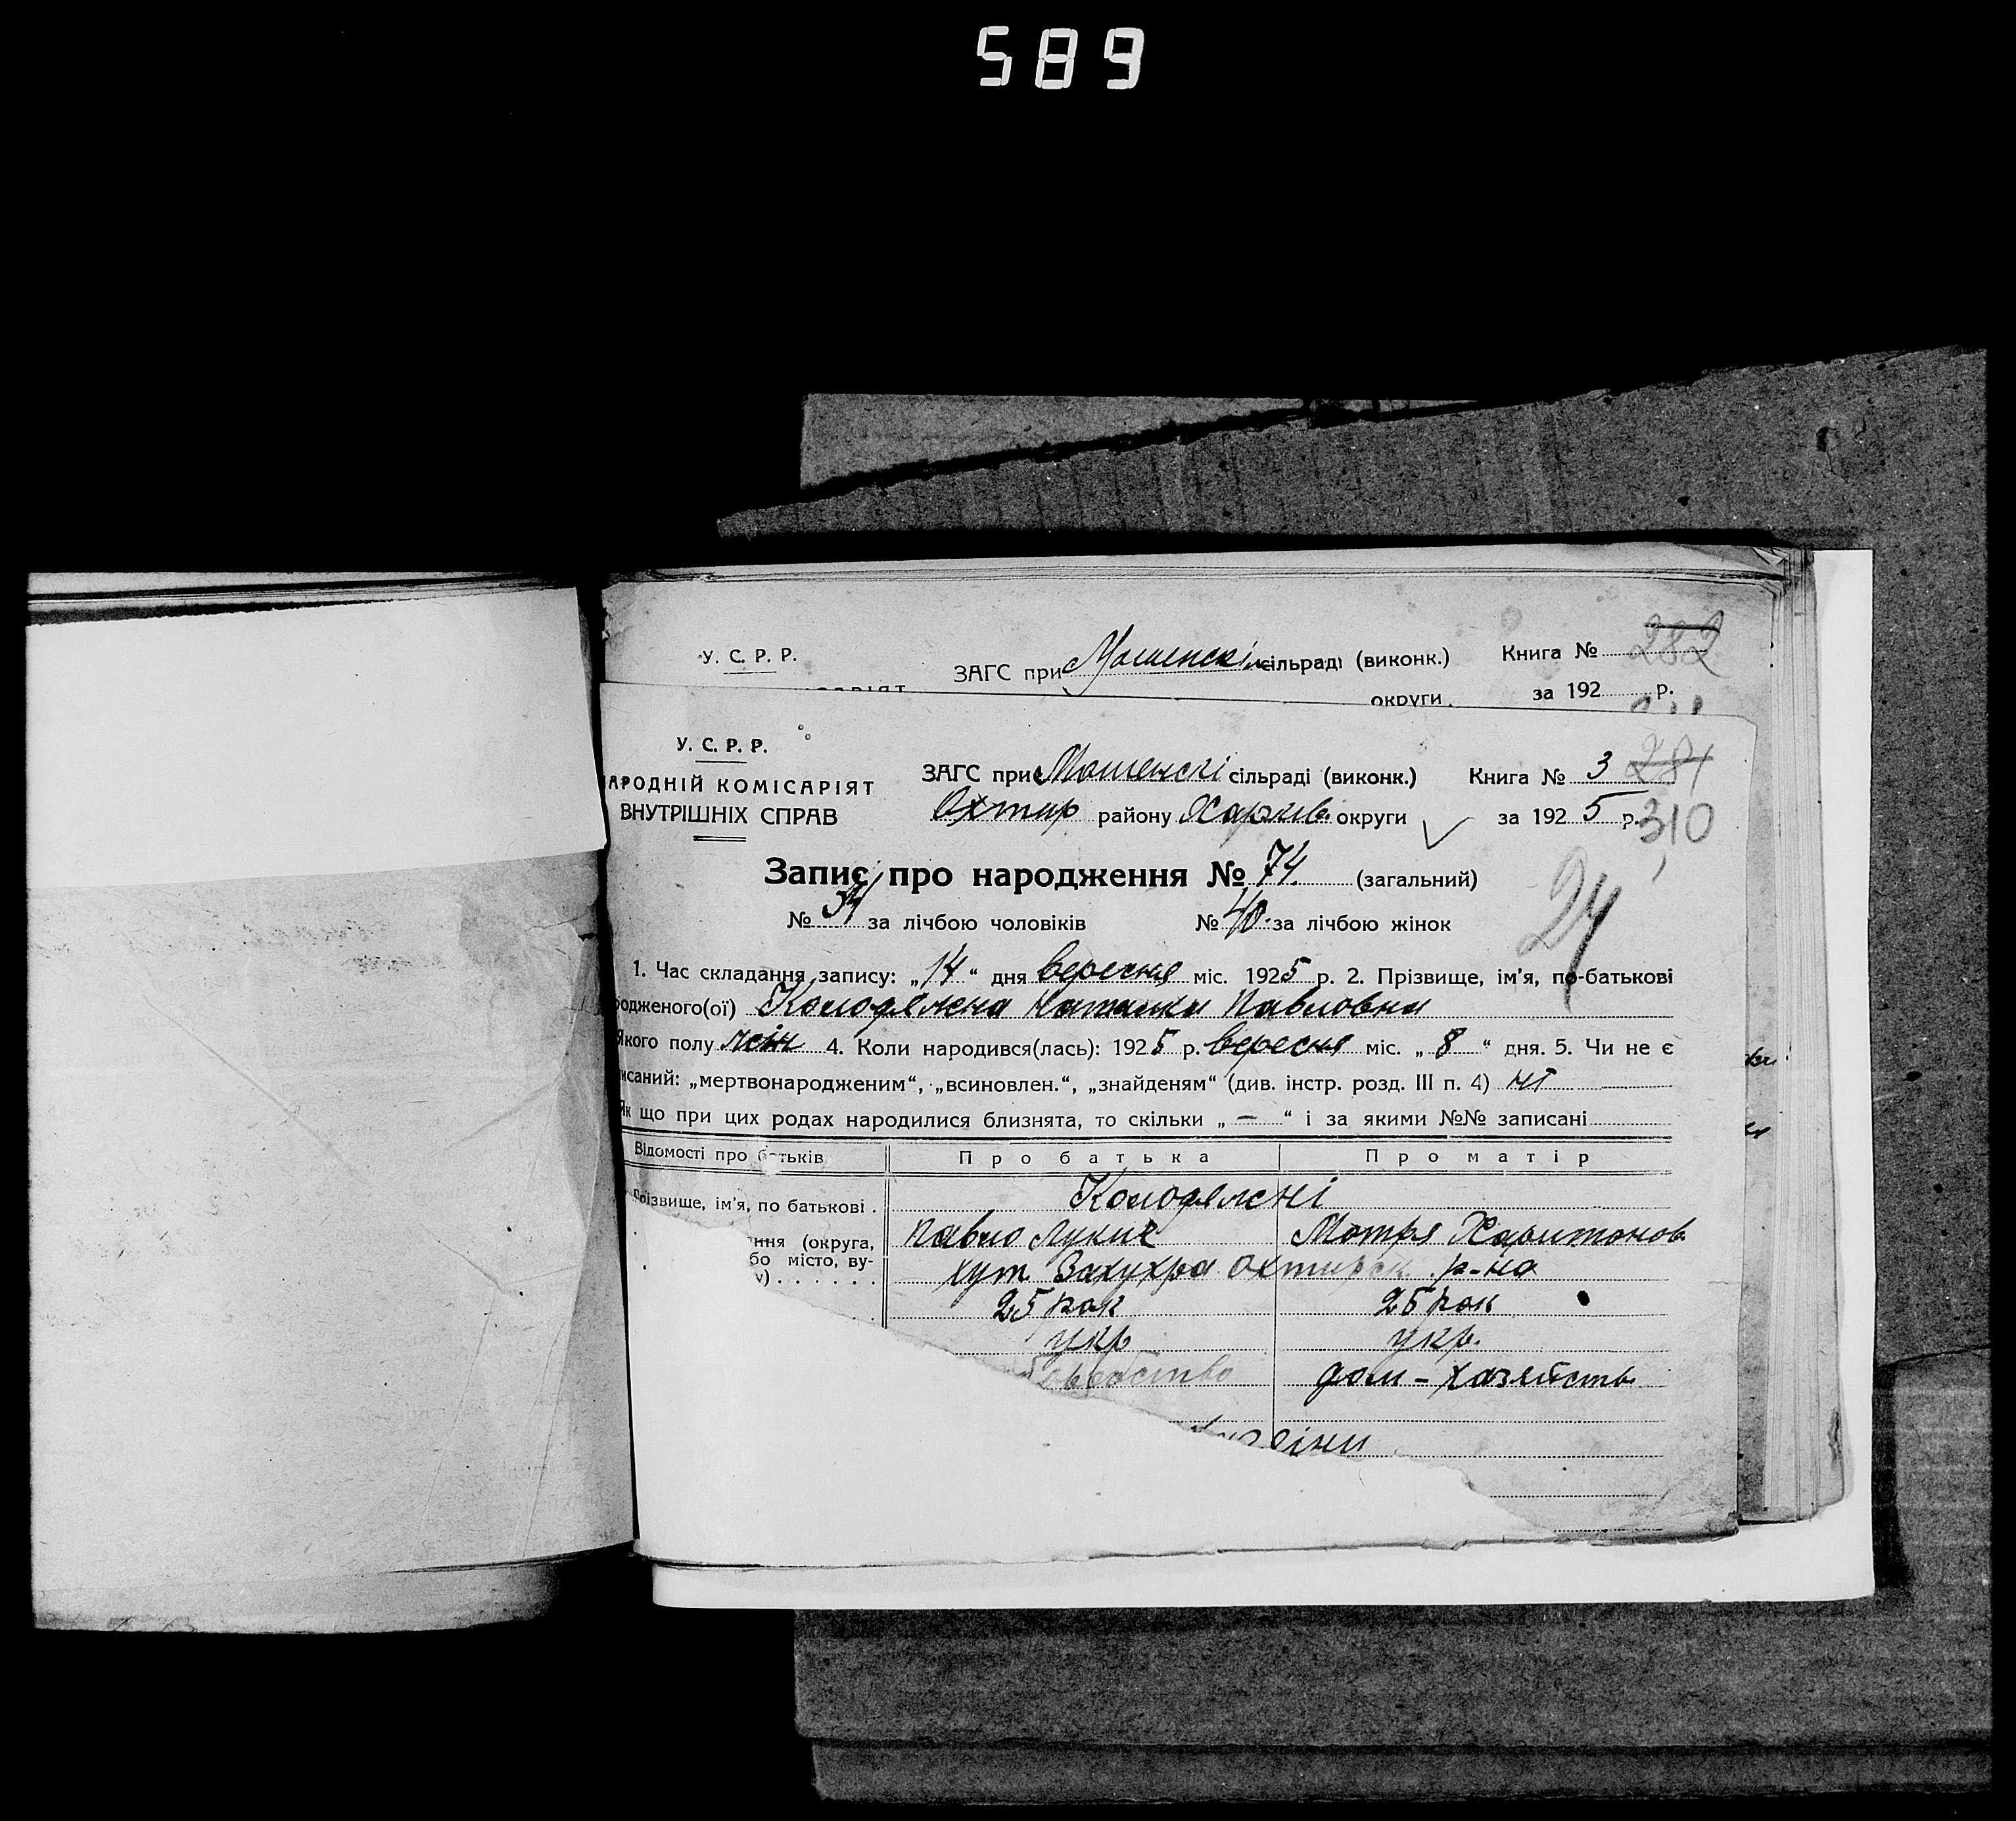 589
У. С. Р. Р.
ЗАГС при Мошенскі сільраді (виконк.) Книга № 282
округи за 192 р.
У. С. Р. Р.
АРОДНІЙ КОМІСАРІЯТ
ВНУТРІШНІХ СПРАВ
ЗАГС при Мошенскі сільраді (виконк.) Книга № 3 281
Охтир району Харків. округи за 1925 р. 310
Запис про народження № 74. (загальний)
24
№ 34 за лічбою чоловіків № 40. за лічбою жінок
1. Час складання запису: „14“ дня вересня міс. 1925 р. 2. Прізвище, ім’я, по-батькові
одженого(ої) Колодяжна Наталка Павловна
Якого полу жін 4. Коли народився(лась): 1925 р. вересня міс. „8“ дня. 5. Чи не є
исаний: „мертвонародженим“, „всиновлен.“, „знайденям“ (див. інстр. розд. III п. 4) ні
Як що при цих родах народилися близнята, то скільки „—“ і за якими №№ записані
Відомості про батьків Про батька Про матір
різвище, ім’я, по батькові . Колодяжні
Павло Лукич Мотря Харитонов
ння (округа,
бо місто, ву-
у) . . . . . .
хут Закухра Охтирск р-на
25 рок 25 рок
укр укр.
дом - хазяйств